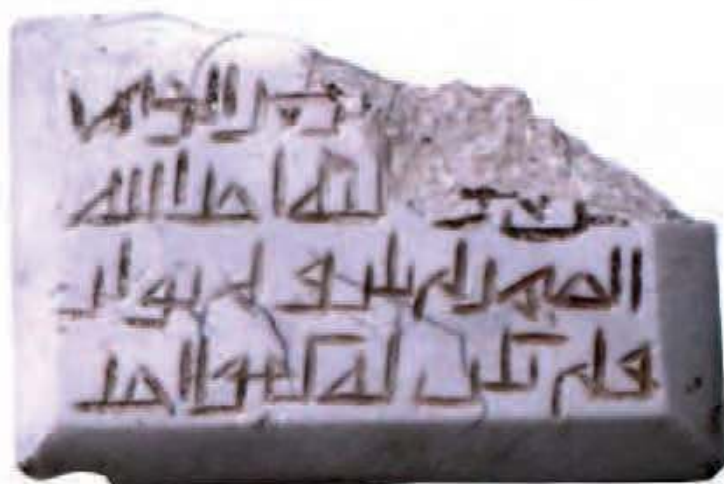 حمن الرحيم
الله احد الله
الصمد لم يلد و لم يولد
و لم يكن له كفوا احد